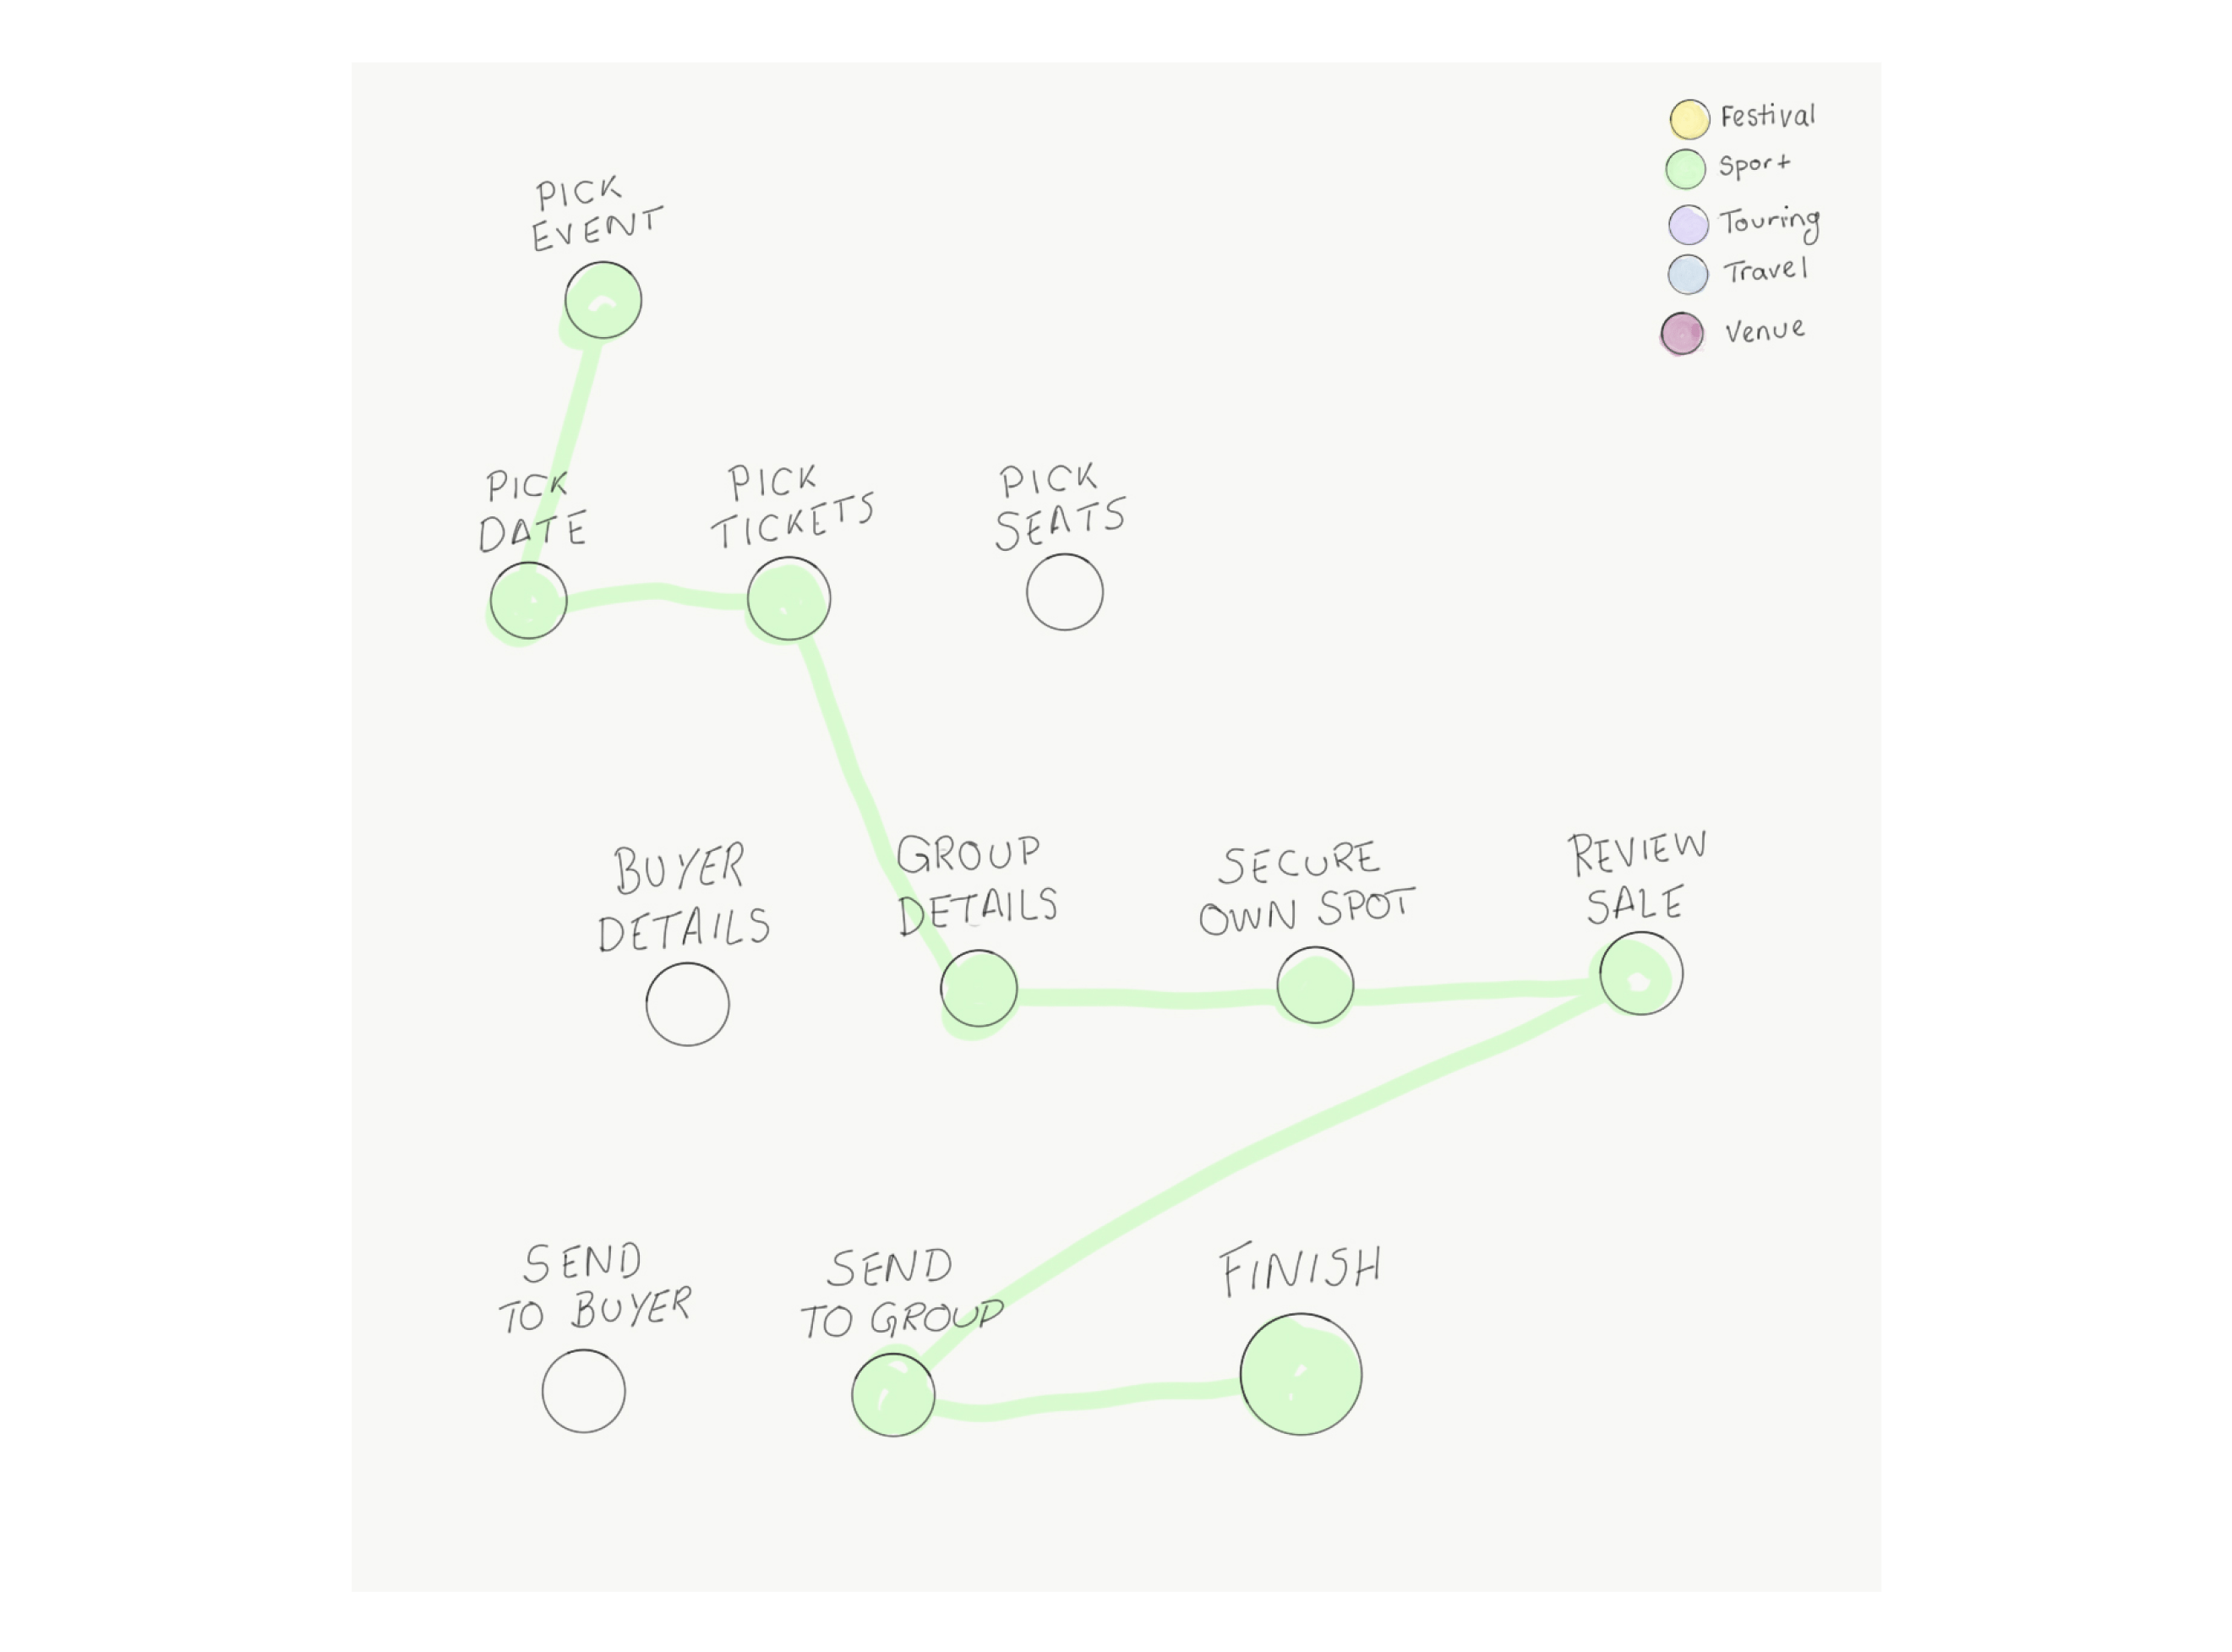 Festival
Sport
Touring
Travel
Venue
PICK
EVENT
PICK
DATE
PICK
TICKETS
PICK
SEATS
BUYER
DETAILS
GROUP
DETAILS
SECURE
OWN SPOT
REVIEW
SALE
SEND
TO BUYER
SEND
TO GROUP
FINISH